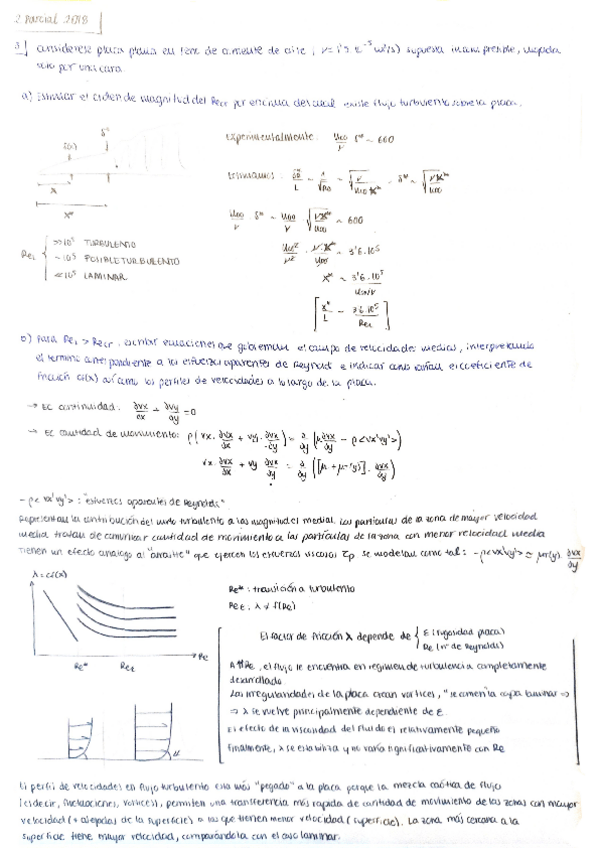 2 Parcial 2018
3] Considérese placa plana en seno de corriente de aire, ν = 1'5 E⁻⁵ m²/s) supuesta incompresible, mojada
solo por una cara.
a) Estimar el orden de magnitud del Recr por encima del cual existe flujo turbulento sobre la placa.
Experimentalmente: U∞/ν δ* ~ 600
δ*
x
x*
U∞/ν δ* ~ U∞/ν · √(νx*/U∞) ~ 600
ReL { >> 10⁵ TURBULENTO
~ 10⁵ POSIBLE TURBULENTO
<< 10⁵ LAMINAR
U∞²/ν² · νx*/U∞ ~ 3'6·10⁵
x* ~ 3'6·10⁵ / U∞/ν
[x*/L ~ 3'6·10⁵/ReL]
b) Para ReL > Recr, escribir ecuaciones que gobiernan el campo de velocidades medias, interpretando
el término correspondiente a los esfuerzos aparentes de Reynolds e indicar como varían el coeficiente de
fricción cf(x) así como los perfiles de velocidades a lo largo de la placa.
→ EC continuidad: ∂vx/∂x + ∂vy/∂y = 0
→ EC cantidad de movimiento: ρ(vx·∂vx/∂x + vy·∂vx/∂y) = ∂/∂y (μ ∂vx/∂y − ρ<vx'vy'>)
vx ∂vx/∂x + vy ∂vx/∂y = ∂/∂y ([μ + μT(y)]·∂vx/∂y)
−ρ<vx'vy'>: "esfuerzos aparentes de Reynolds"
Representan la contribución del mvto turbulento a las magnitudes medias. Las partículas de la zona de mayor velocidad
media tratan de comunicar cantidad de movimiento a las partículas de la zona con menor velocidad media
Tienen un efecto análogo al "arrastre" que ejercen los esfuerzos viscosos se modelan como tal: −ρ<vx'vy'> ≈ μT(y) ∂vx/∂y
λ = cf(x)
Re* : transición a turbulento
El factor de fricción λ depende de { ε (rugosidad placa)
Re (nº de Reynolds)
A ↑↑Re, el flujo se encuentra en regimen de turbulencia completamente
desarrollado.
Las irregularidades de la placa crean vórtices, "se comen la capa laminar" ⇒
⇒ λ se vuelve principalmente dependiente de ε.
El efecto de la viscosidad del fluido es relativamente pequeño
Finalmente, λ se estabiliza y no varía significativamente con Re
Re
Re*
El perfil de velocidades en flujo turbulento está más "pegado" a la placa porque la mezcla caótica de flujo
(es decir, fluctuaciones, vórtices), permiten una transferencia más rapida de cantidad de movimiento de las zonas con mayor
velocidad (+ alejadas de la superficie) a las que tienen menor velocidad (superficie). La zona más cercana a la
superficie tiene mayor velocidad, comparándola con el caso laminar.